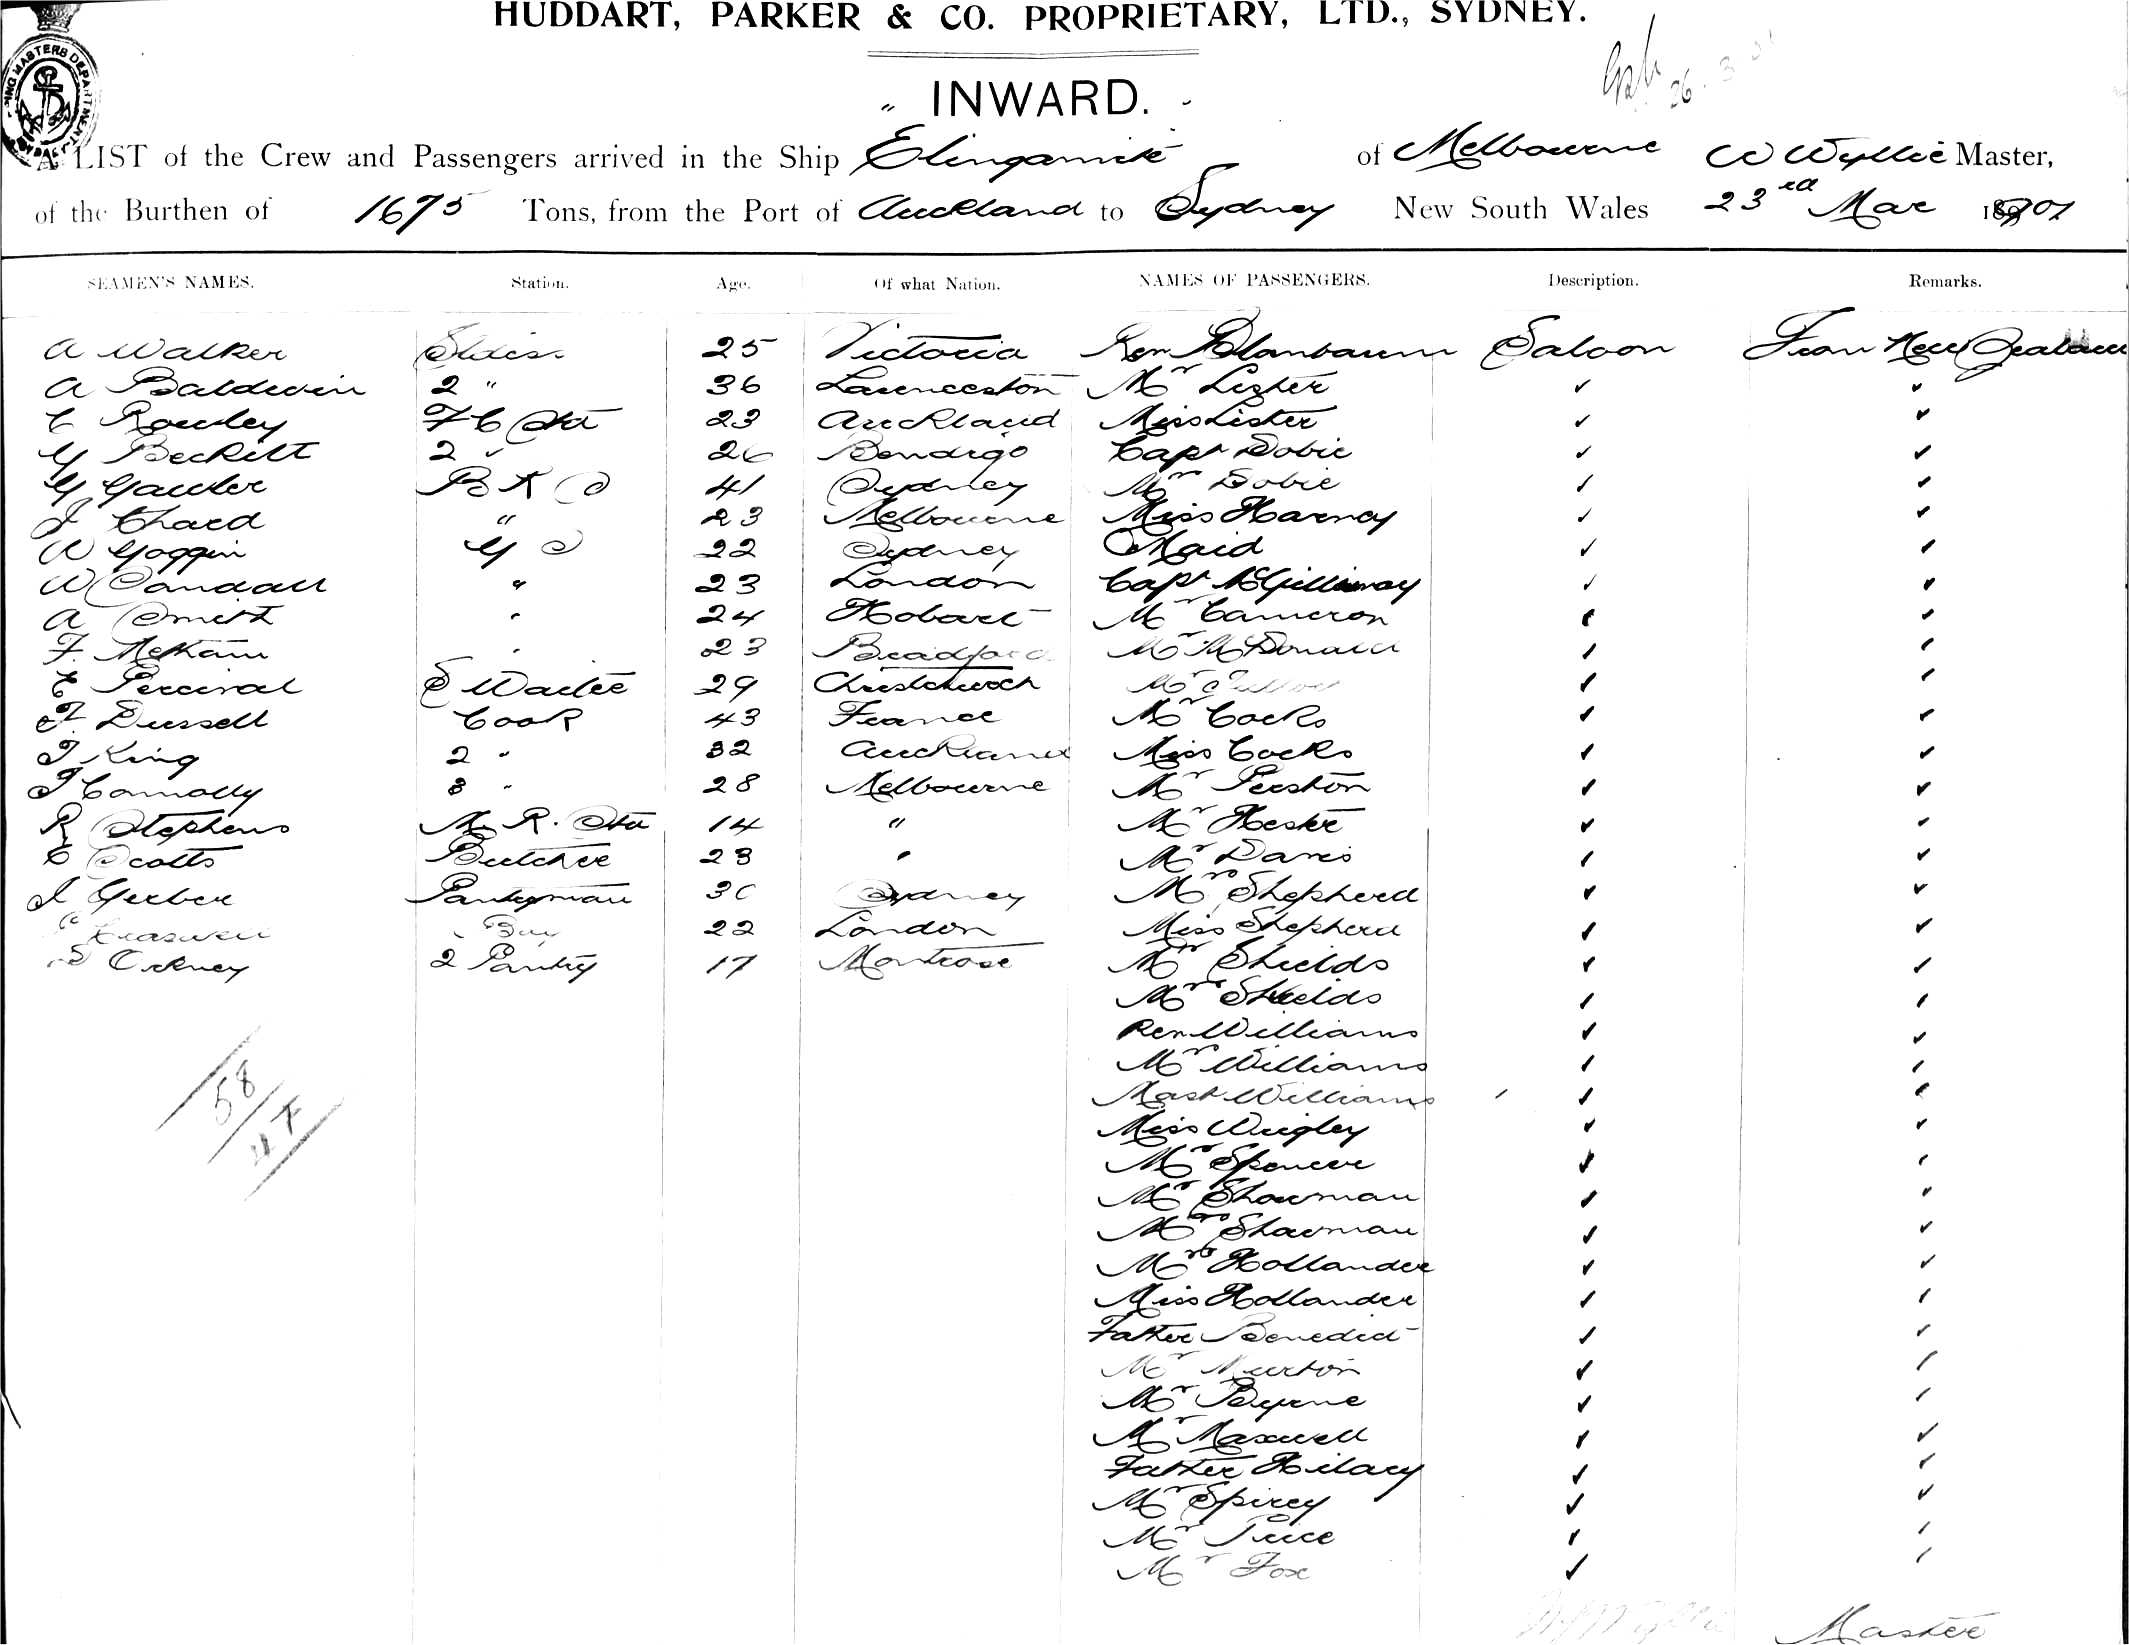 HUDDART, PARKER & CO. PROPRIETARY, LTD., SYDNEY.
" INWARD. "
A LIST of the Crew and Passengers arrived in the Ship Elingamite of Melbourne W Wyllie Master,
of the Burthen of 1675 Tons, from the Port of Auckland to Sydney New South Wales 23rd Mar 1901
SEAMEN'S NAMES. Station. Age. Of what Nation. NAMES OF PASSENGERS. Description. Remarks.
A Walker 25 Victoria Rev Saloon From New Zealand
A Baldwin 2 " 36 Launceston Mr Lister
C Rowley F C Std 23 Auckland Miss Lister
G Beckett 2 " 26 Bendigo Capt Dobie
G Gawler B K S 41 Sydney Mrs Dobie
J Chard " 23 Melbourne Miss Harney
A Goggin G S 22 Sydney Maid
W Candall " 23 London Capt McGillivray
A Smith " 24 Hobart Mr Cameron
F. Metham " 23 Bradford Mr McDonald
E Percival S Waiter 29 Christchurch Mr
F. Dussell Cook 43 France Mr Cocks
J King 2 " 32 Auckland Miss Cocks
J Connolly 3 " 28 Melbourne Mr Preston
R Stephens M. R. Std 14 " Mr Heste
C Scotts Butcher 23 " Mr Davis
J Gerber Pantryman 30 Sydney Mrs Shepherd
Boy 22 London Miss Shepherd
S Orkney 2 Pantry 17 Montrose Mr Shields
Mrs Shields
Rev Williams
Mrs Williams
Mast Williams
Miss Wrigley
Mr Spencer
Mr Showman
Mrs Showman
Mrs Hollander
Miss Hollander
Father Benedict
Mr Nurton
Mr Byrne
Mr Maxwell
Father Hilary
Mr Spirey
Mr Price
Mr Fox
58
Master